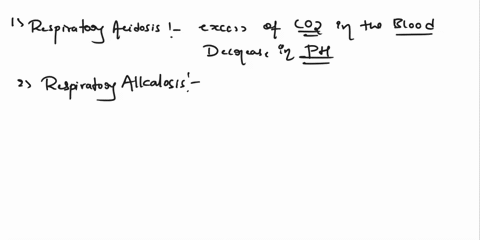 1) Respiratory Acidosis :- excess of CO2 in the Blood
Decrease in PH
2) Respiratory Alkalosis :-